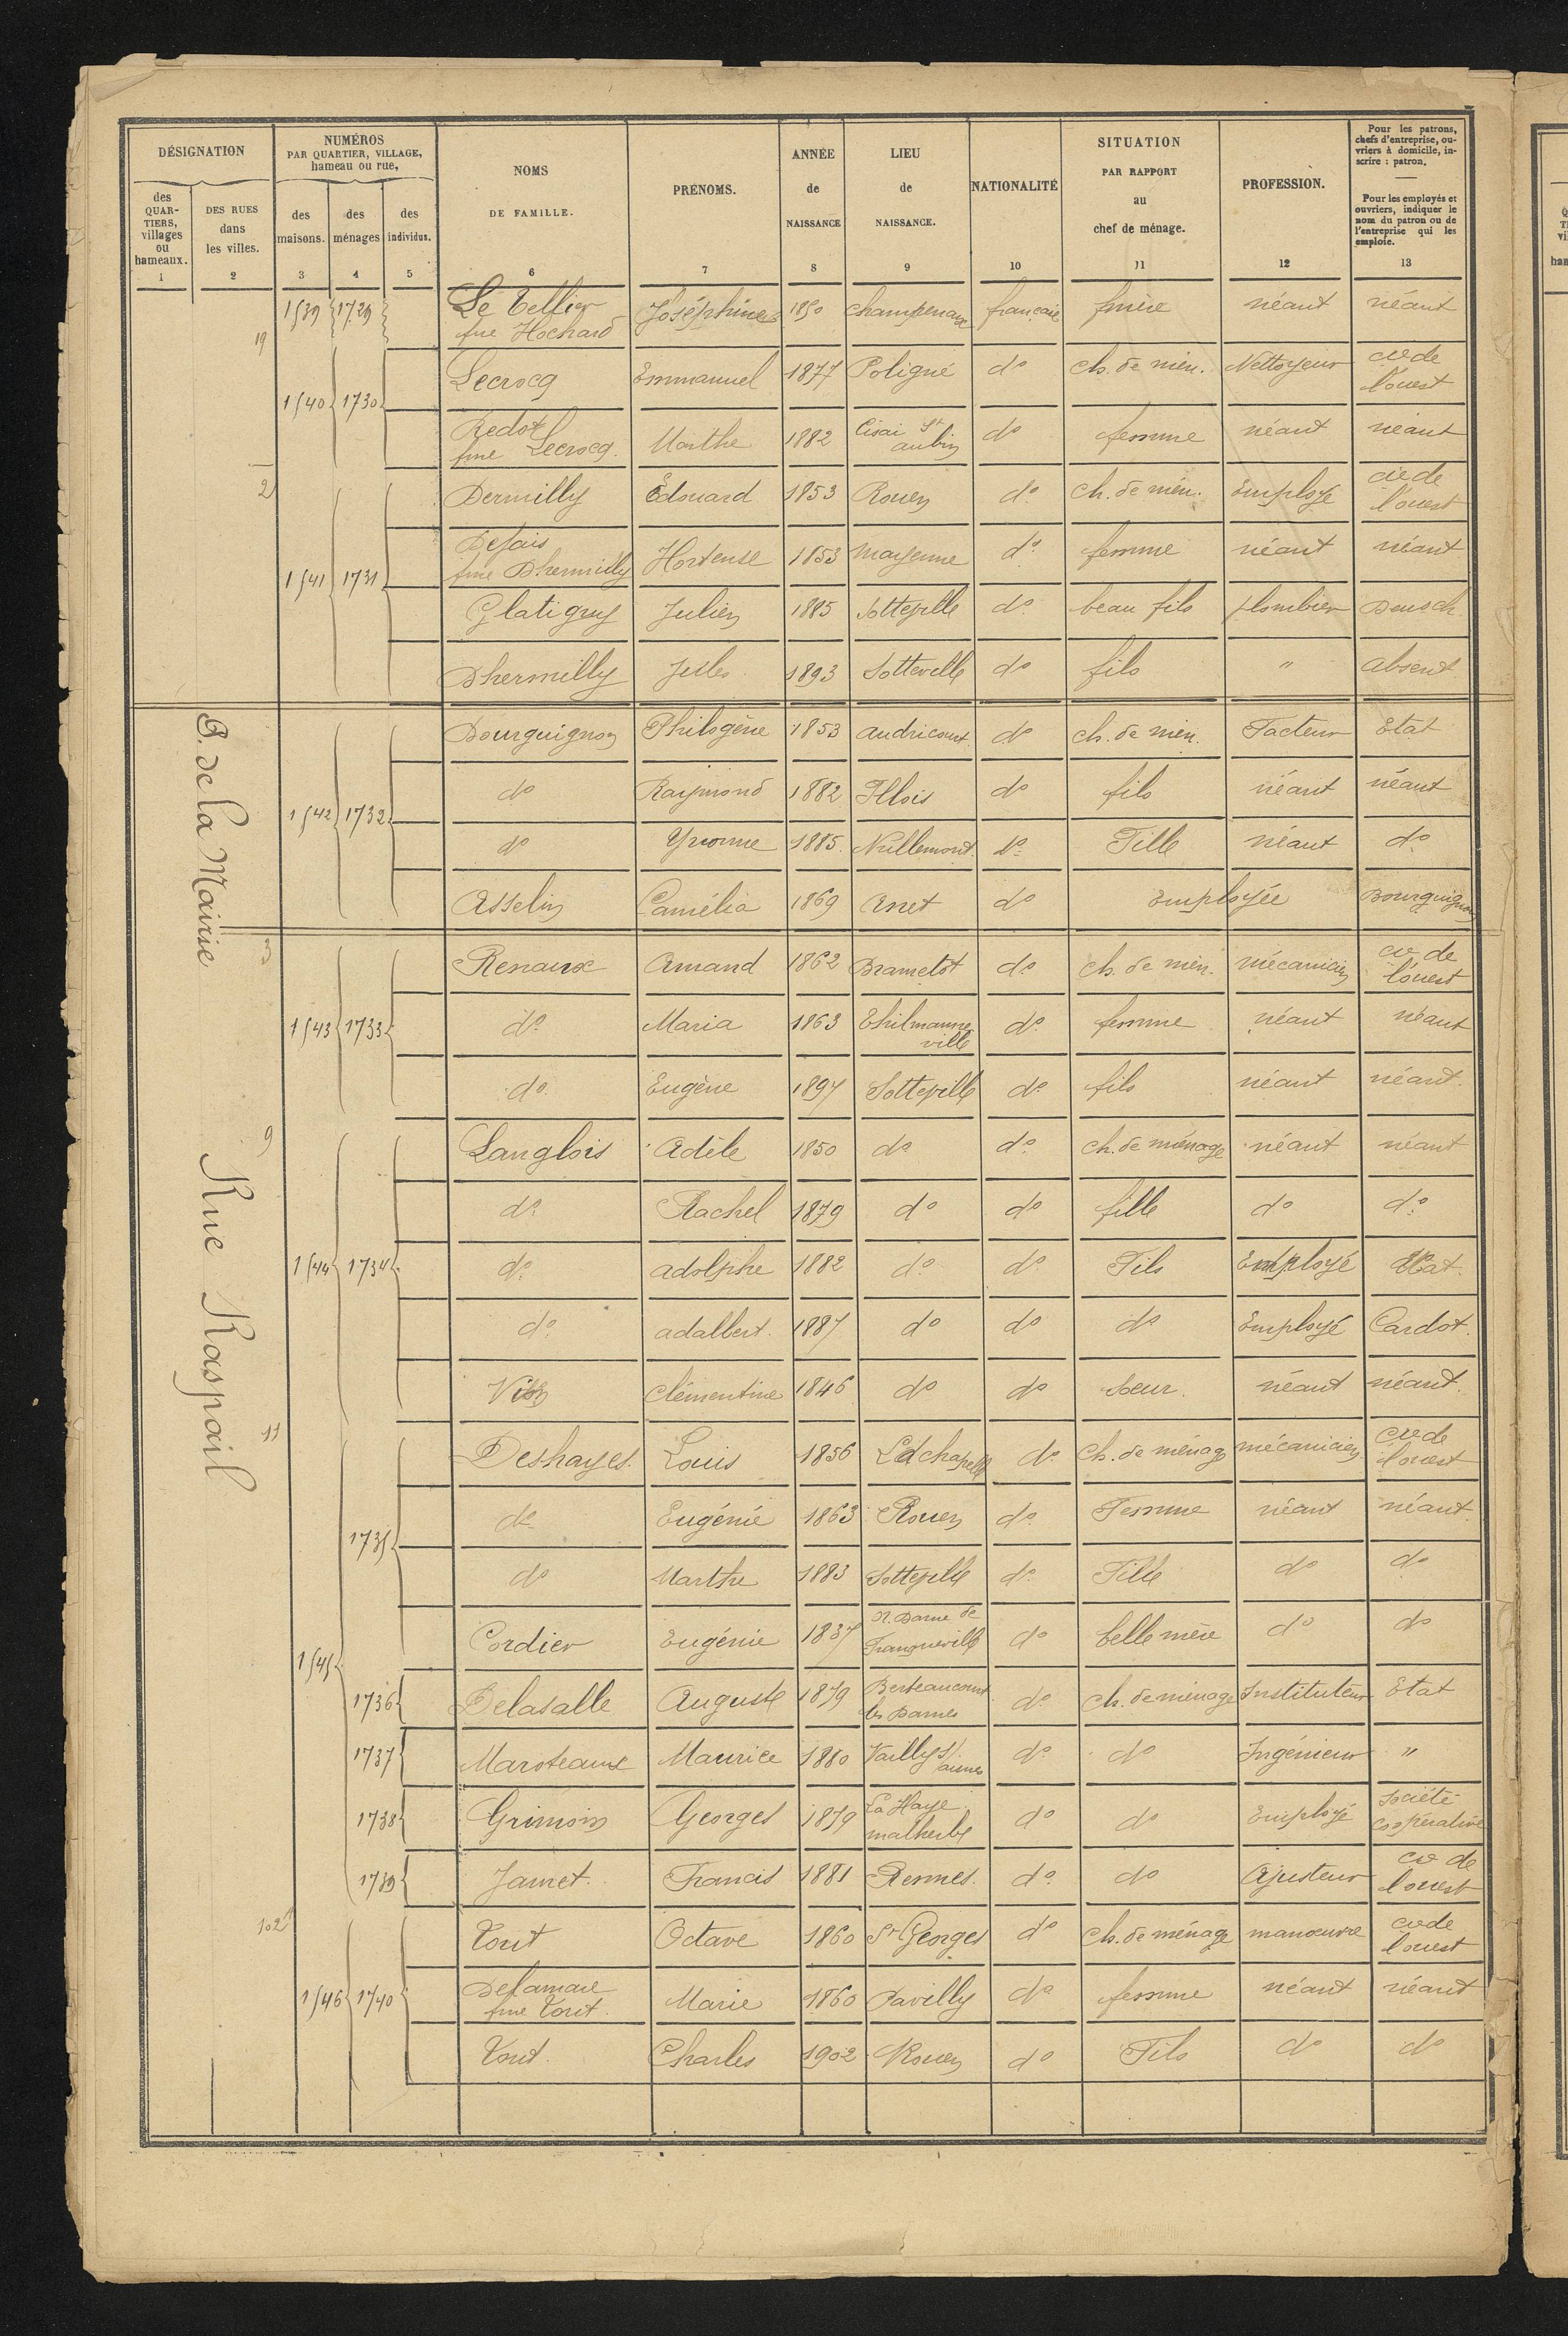 DÉSIGNATION
des QUAR-TIERS, villages ou hameaux.
DES RUES dans les villes.
NUMÉROS PAR QUARTIER, VILLAGE, hameau ou rue,
des maisons.
des ménages
des individus.
NOMS DE FAMILLE.
PRÉNOMS.
ANNÉE de NAISSANCE
LIEU de NAISSANCE.
NATIONALITÉ
SITUATION PAR RAPPORT au chef de ménage.
PROFESSION.
Pour les patrons, chefs d'entreprise, ouvriers à domicile, inscrire : patron.
Pour les employés et ouvriers, indiquer le nom du patron ou de l'entreprise qui les emploie.
1 2 3 4 5 6 7 8 9 10 11 12 13
19 1539 1729 Le Tellier fme Hochard Joséphine 1850 française néant néant
1540 1730 Lecrocq Emmanuel 1877 Poligné do ch. de mén. Nettoyeur cie de l'ouest
Redot fme Lecrocq. Marthe 1882 Cisai St aubin do femme néant néant
2 1541 1731 Dermilly Edouard 1853 Rouen do ch. de mén. Employé cie de l'ouest
Defais fme Dhermilly Hortense 1853 Mayenne do femme néant néant
Glatigny Julien 1885 Sotteville do beau fils plombier
Dhermilly Jules 1893 Sotteville do fils " absent
P. de la Mairie
1542 1732 Bourguignon Philogène 1853 Audricourt do ch. de mén. Facteur Etat
do Raymond 1882 Illois do fils néant néant
do Yvonne 1885 Nullemont do Fille néant do
Asselin Camélia 1869 Anet do Employée Bourguignon
Rue Raspail
3 1543 1733 Renaux Amand 1862 Brametot do ch. de mén. mécanicien cie de l'ouest
do Maria 1863 Ehilmanneville do femme néant néant
do Eugène 1897 Sotteville do fils néant néant
9 1544 1734 Langlois Adèle 1850 do do ch. de ménage néant néant
do Rachel 1879 do do fille do do
do adolphe 1882 do do Fils Employé Etat
do adalbert 1887 do do do Employé Cardot
Clémentine 1846 do do Soeur néant néant
11 1545 1735 Deshayes Louis 1856 do ch. de ménage mécanicien cie de l'ouest
do Eugénie 1863 Rouen do Femme néant néant
do Marthe 1883 Sotteville do Fille do do
Cordier Eugénie 1837 N. Dame de Franqueville do belle mère do do
1736 Delasalle Auguste 1879 Berteaucourt les Dames do ch. de ménage Instituteur Etat
1737 Maroteaux Maurice 1880 Vailly s/ aisne do do Ingénieur "
1738 Grimoin Georges 1879 La Haye malherbe do do Employé Société coopérative
1739 Jamet Francis 1881 Rennes do do Ajusteur cie de l'ouest
102 1546 1740 Tout Octave 1860 St Georges do ch. de ménage manœuvre cie de l'ouest
Delamare fme Tout Marie 1860 Pavilly do femme néant néant
Tout Charles 1902 Rouen do Fils do do